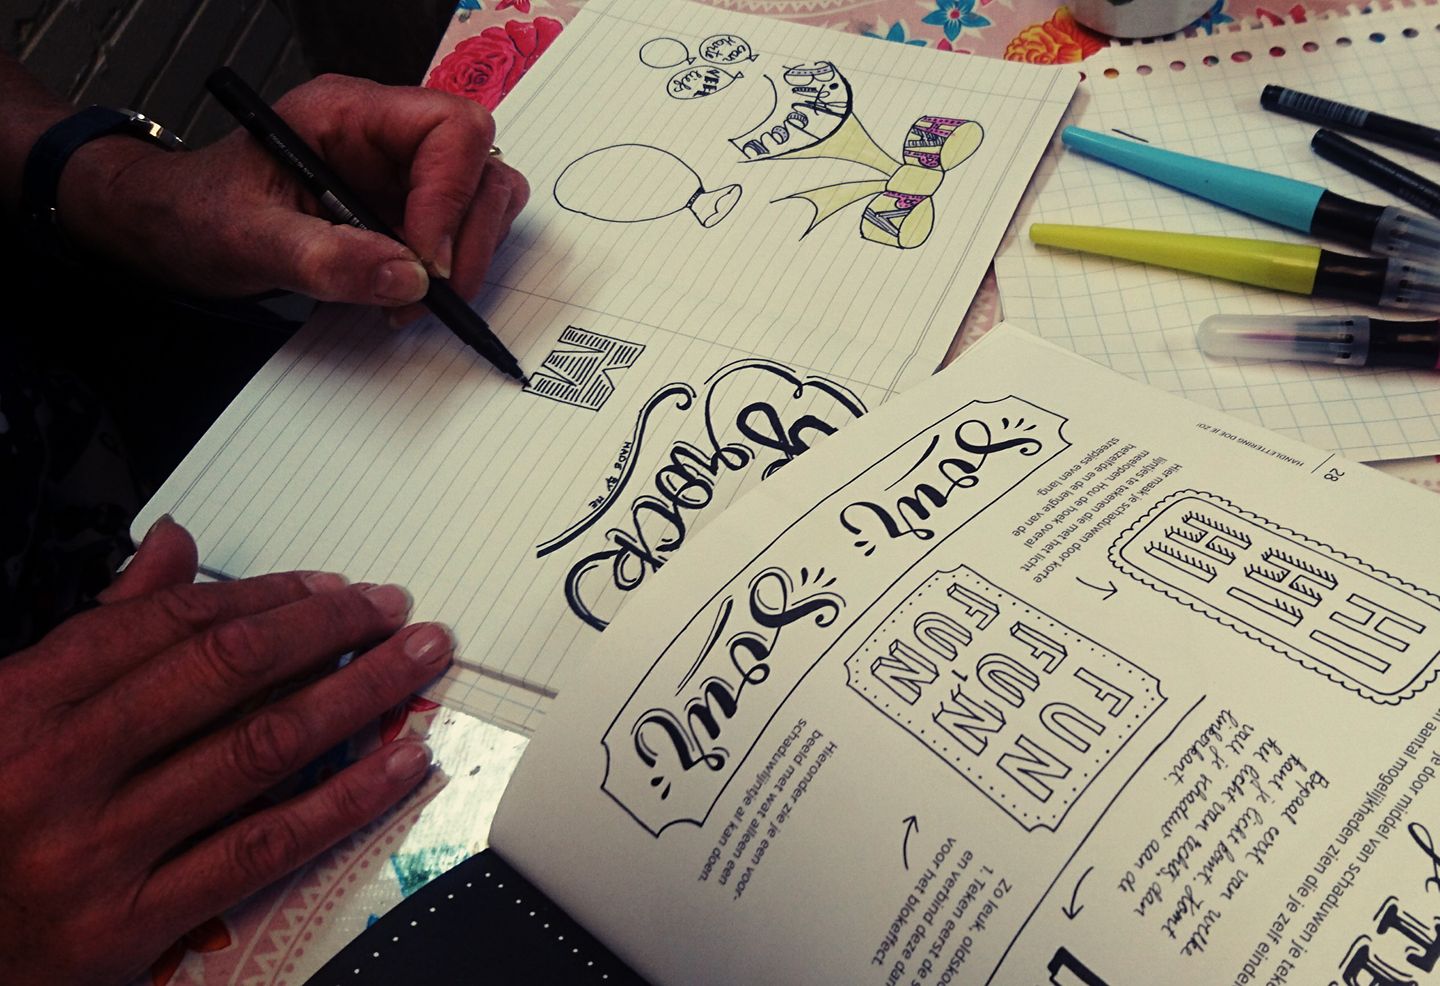 van
harte
VEEL
liefs
YAY
you
ROCK
MADE BY ME
28
HANDLETERING DOE JE ZO!
Hier maak je schaduwen door korte
lijntjes te tekenen die met het licht
meelopen. Hou de hoek overal
hetzelfde en de lengte van de
streepjes even lang.
HI
HI
HI
Soul
Soul
FUN
FUN
FUN
FUN
Hieronder zie je een voor-
beeld met wat alleen een
schaduwlijntje al kan doen.
Bepaal eerst van welke
kant je licht komt. Komt
het licht van rechts, dan
valt je schaduw aan de
linkerkant.
Zo leuk, oldsko
1. Teken eerst de
en verbind deze dan
voor het blokeffect.
je door middel van schaduwen je
aantal mogelijkheden zien die je zelf